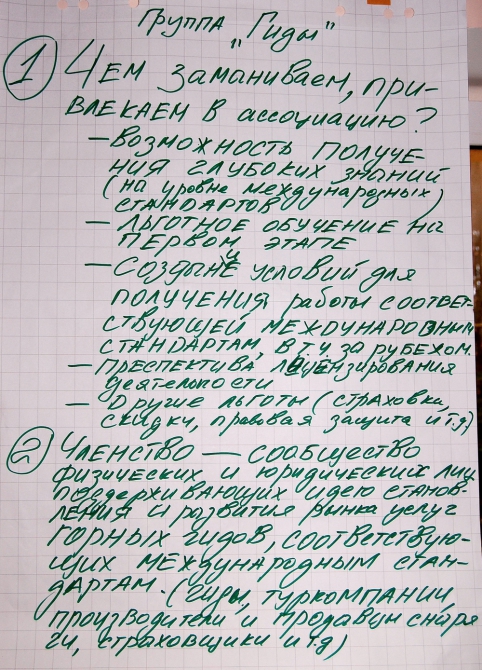 Группа „Гиды"
① Чем заманиваем, при-
влекаем в ассоциацию?
– Возможность получе-
ния глубоких знаний
(на уровне международных
стандартов)
– Льготное обучение на
первом этапе
– Создание условий для
получения работы соответ-
ствующей международным
стандартам, в т.ч. за рубежом.
– Преспектива лецензирования
деятельности
– Другие льготы (страховка,
скидки, правовая защита и т.д)
② Членство – сообщество
физических и юридических лиц
поддерживающих идею станов-
ления и развития рынка услуг
горных гидов, соответствую-
щих международным стан-
дартам. (гиды, туркомпании,
производители и продавцы снаря
ги, страховщики и т.д)